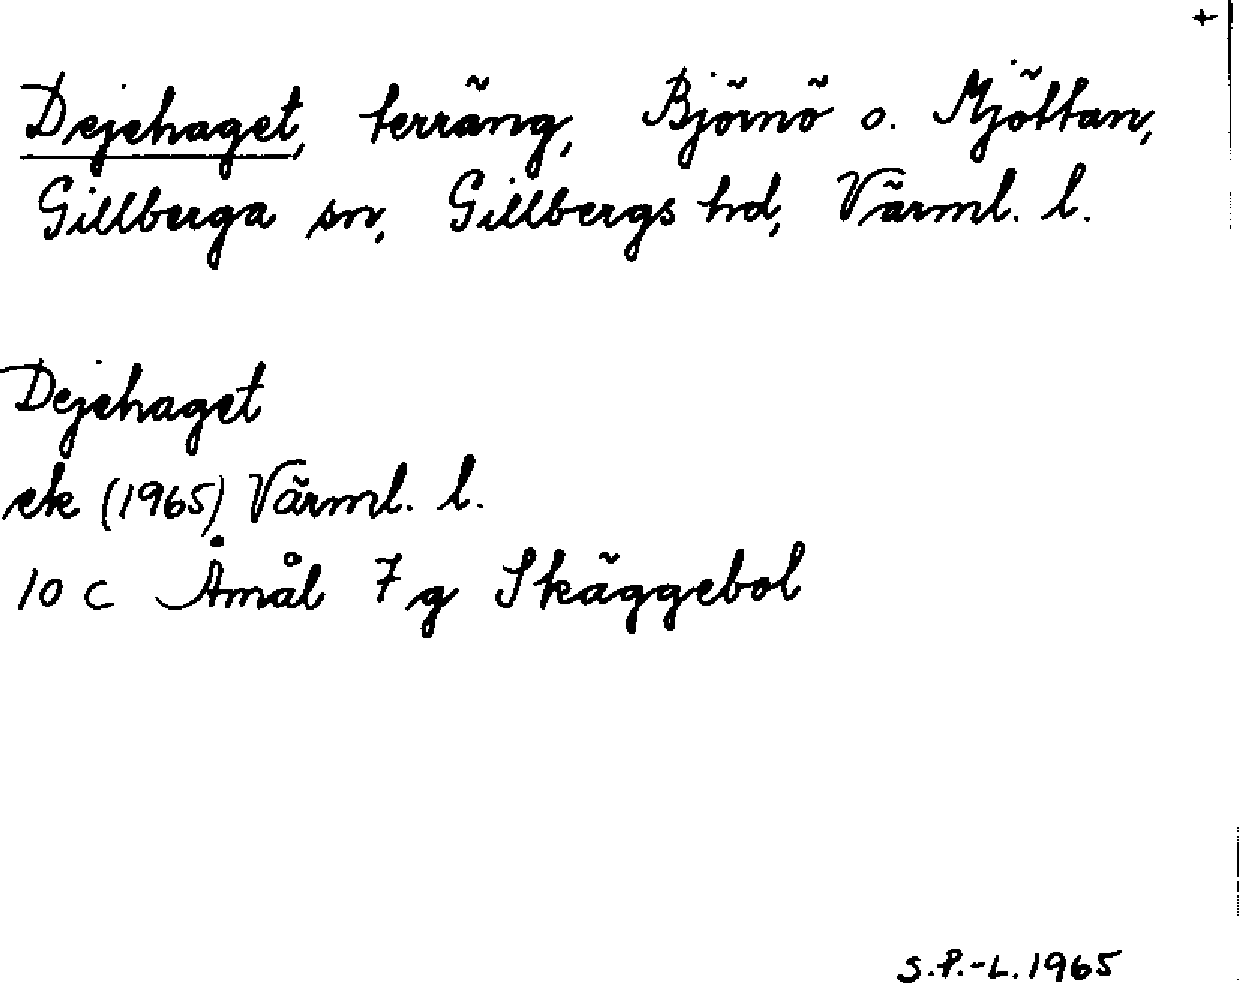 +
Dejehaget, terräng, Björnö o. Mjöttan,
Gillberga sn, Gillbergs hd, Värml. l.
Dejehaget
ek (1965) Värml. l.
10 C Åmål 7 g Skäggebol
S.P.-L. 1965